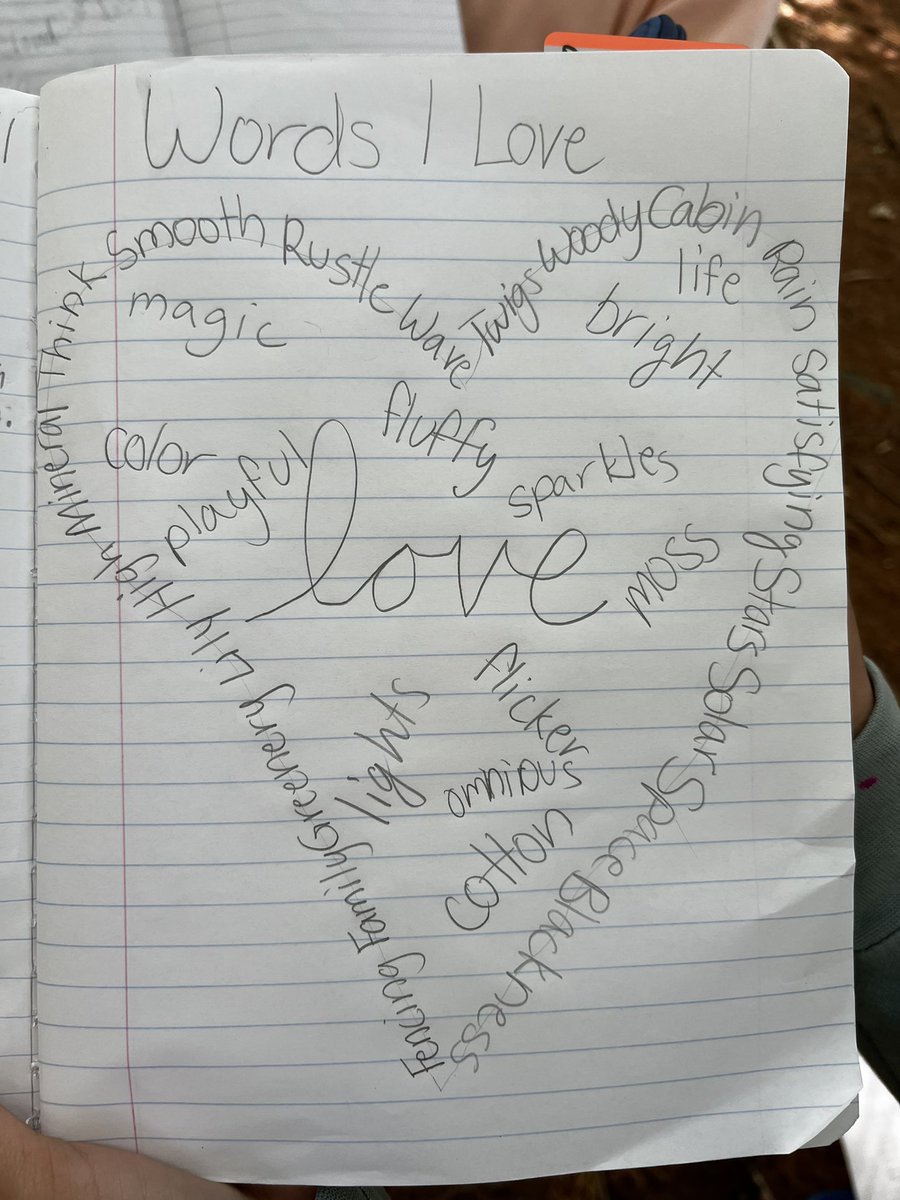 Words I Love
Smooth
Rustle
Wave
Twigs
Woody
Cabin
Rain
Satisfying
Stars
Solar
Space
Blackness
Think
Mineral
High
Lily
Greenery
Family
Fencing
magic
life
bright
fluffy
color
playful
sparkles
love
moss
flicker
lights
omnious
cotton